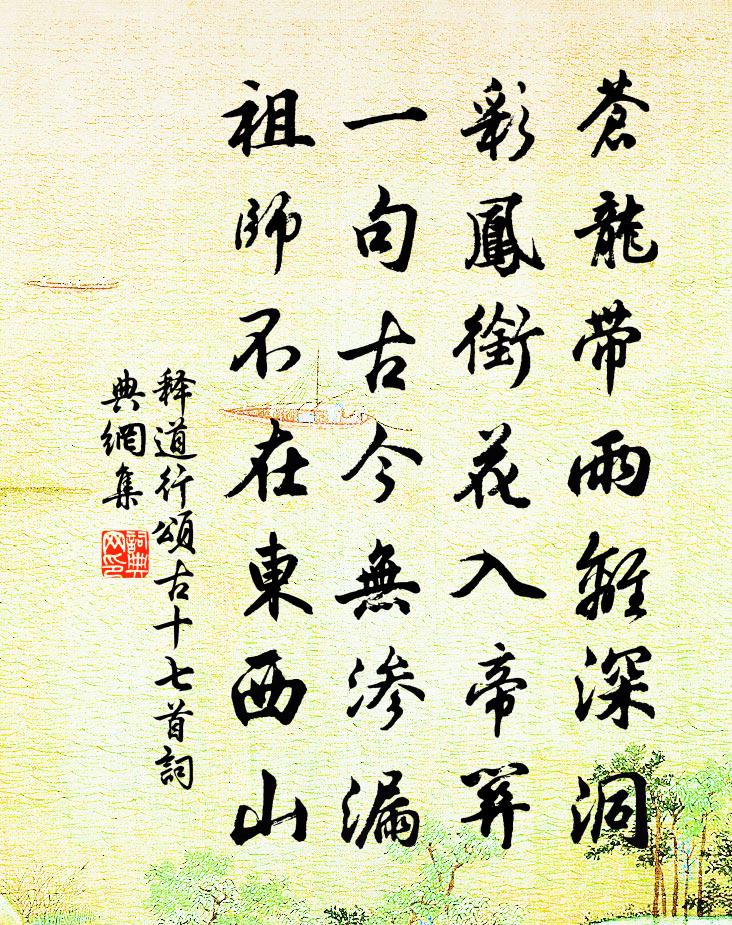 蒼龍帶雨離深洞
彩鳳銜花入帝關
一句古今無渗漏
祖師不在東西山
释道行頌古十七首詞
典網集
詞典
网印